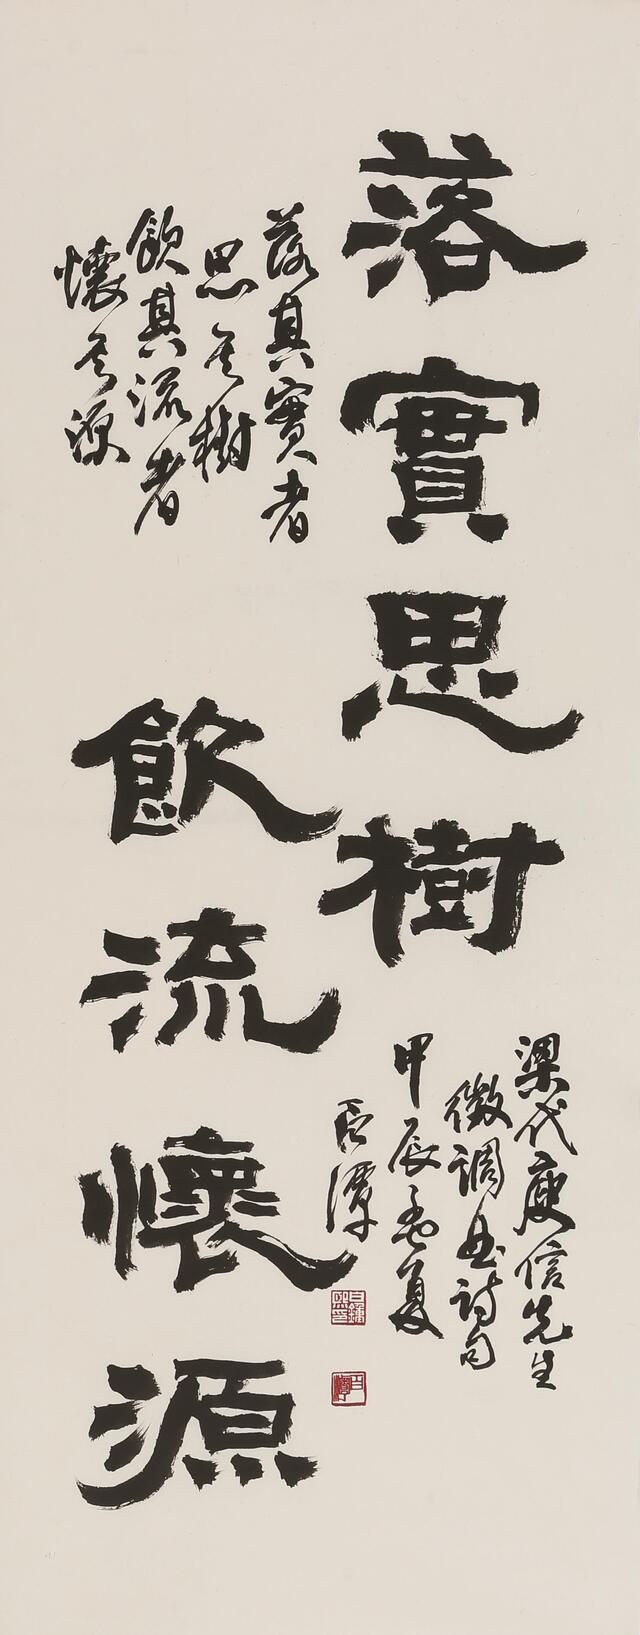 落實思樹
飲流懷源
落其實者
思其樹
飲其流者
懷其源
梁代庾信先生
徵調曲詩句
甲辰孟夏
石潭